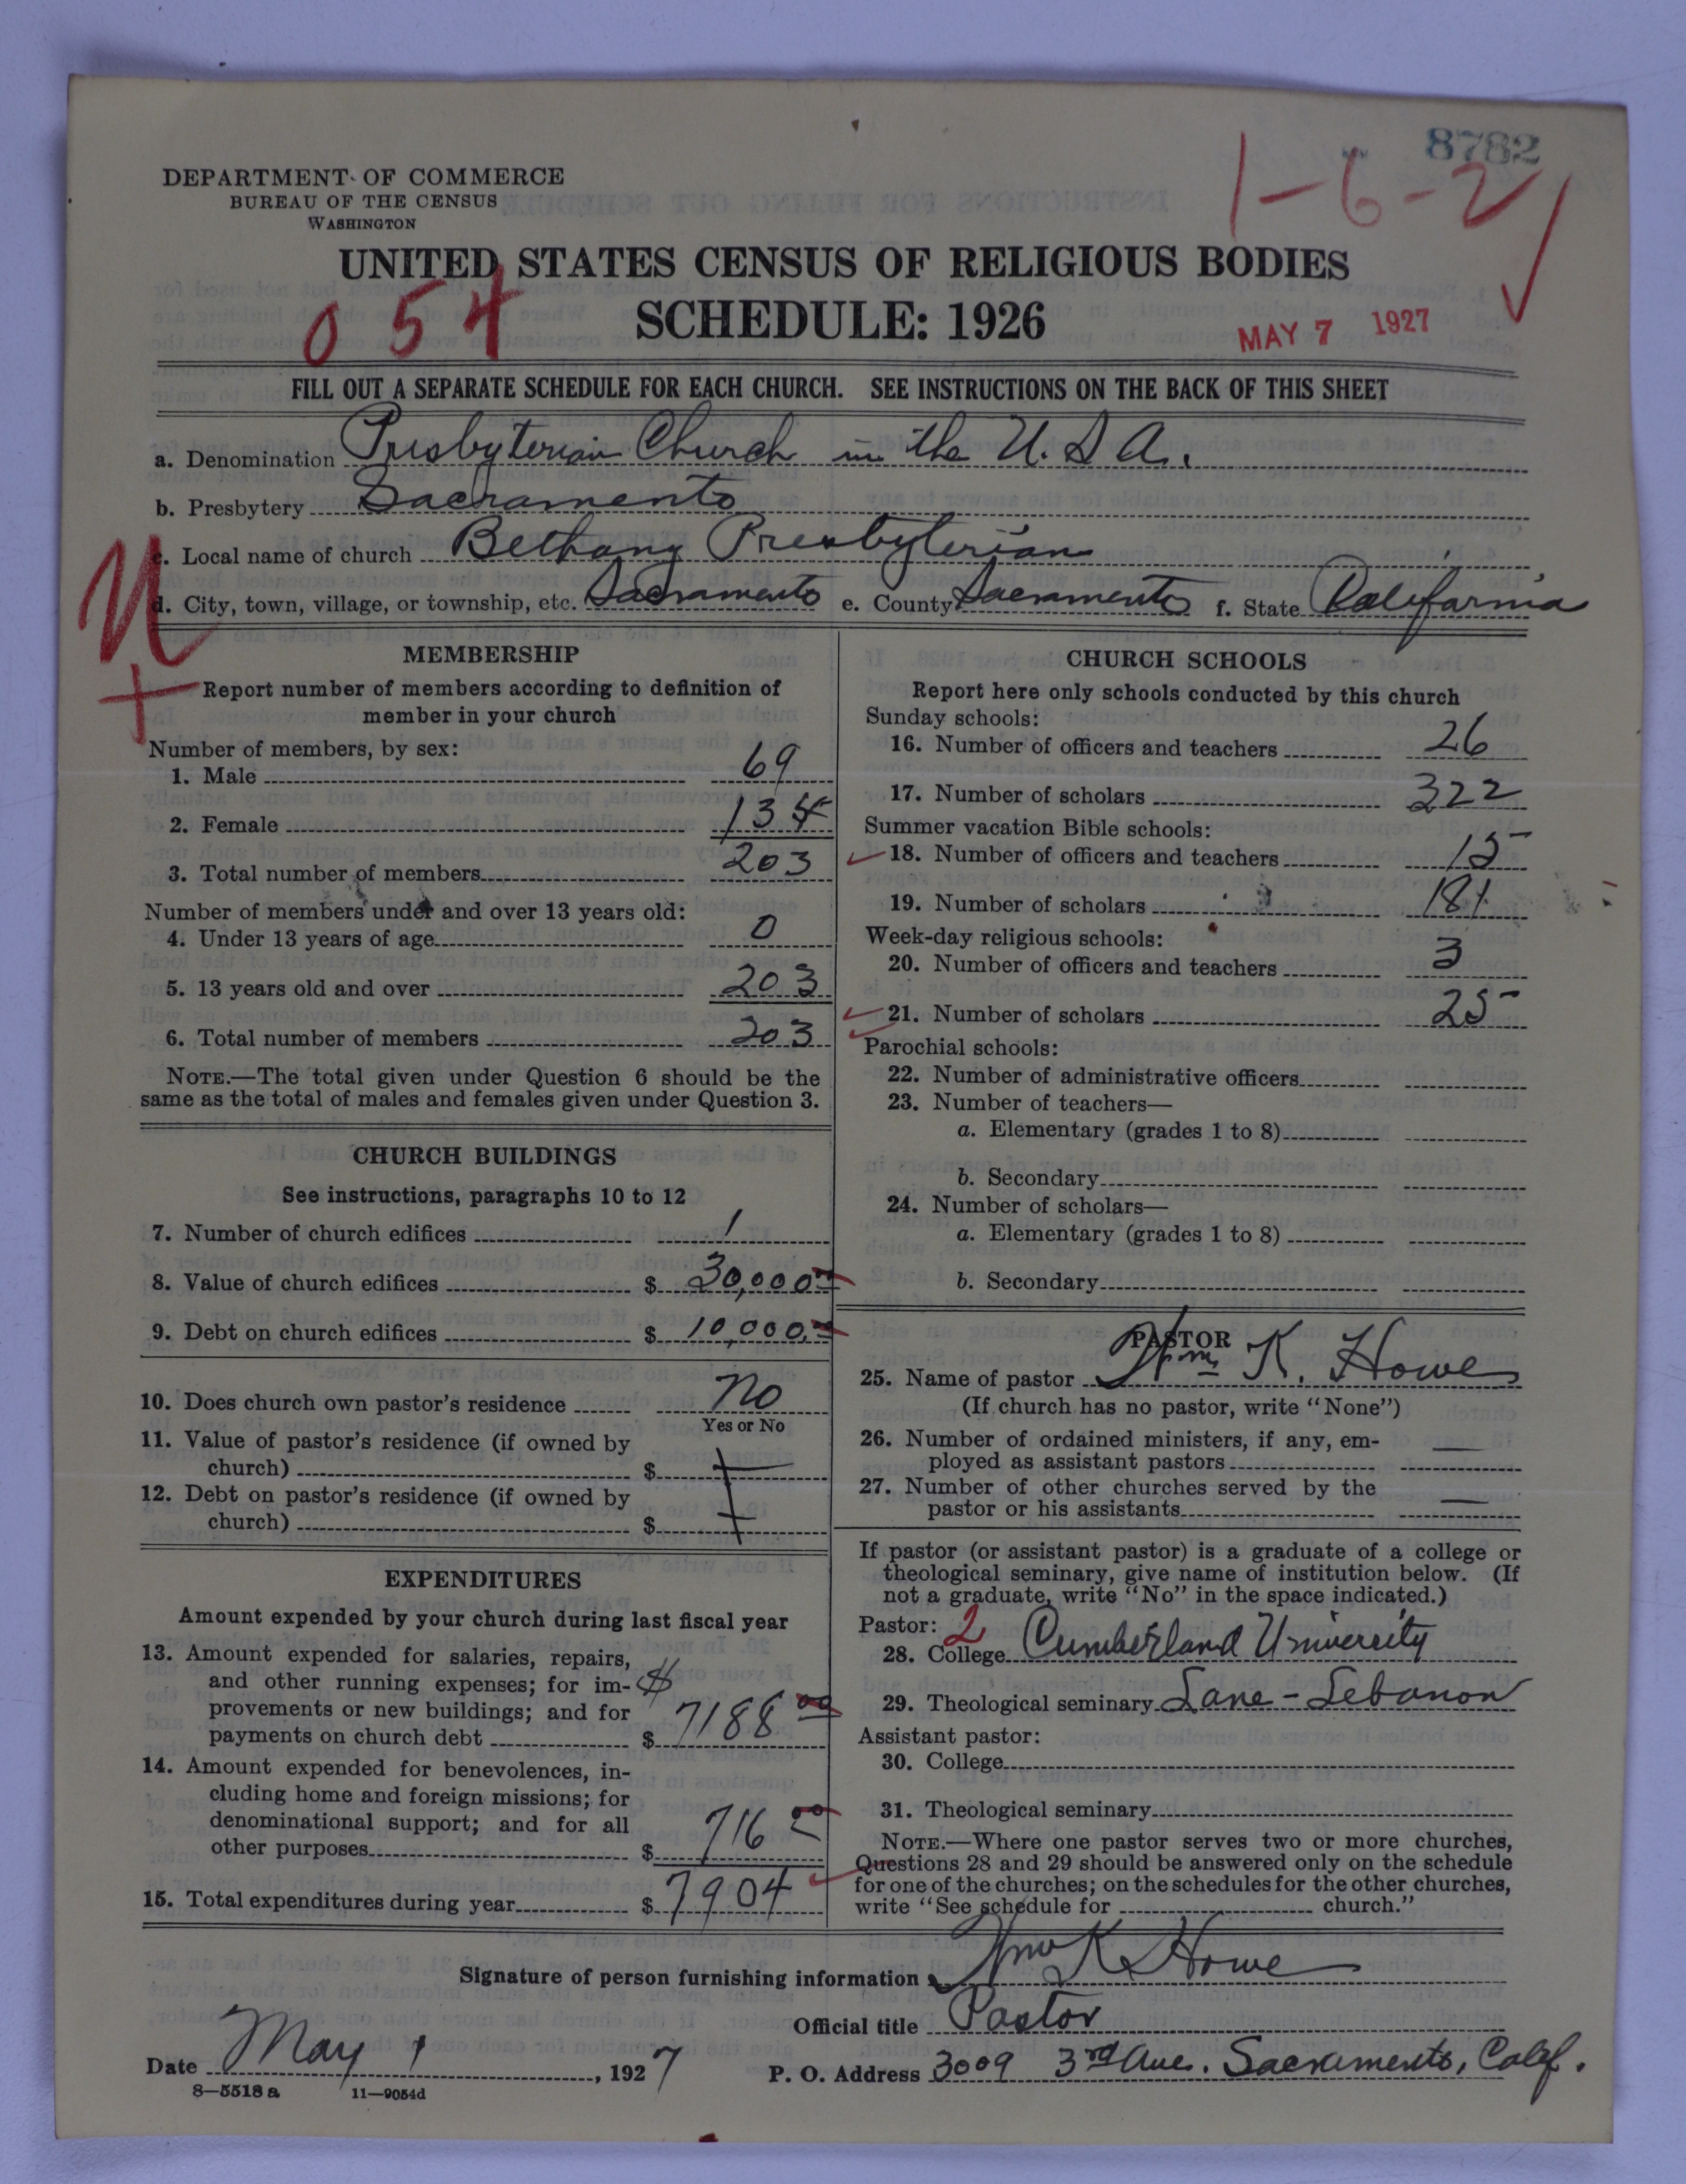 8782
1-6-2
DEPARTMENT OF COMMERCE
BUREAU OF THE CENSUS
WASHINGTON
UNITED STATES CENSUS OF RELIGIOUS BODIES
054
SCHEDULE: 1926
MAY 7 1927
FILL OUT A SEPARATE SCHEDULE FOR EACH CHURCH. SEE INSTRUCTIONS ON THE BACK OF THIS SHEET
a. Denomination Presbyterian Church in the U.S.A.
b. Presbytery Sacramento
c. Local name of church Bethany Presbyterian
N
d. City, town, village, or township, etc. Sacramento e. County Sacramento f. State California
MEMBERSHIP
Report number of members according to definition of
member in your church
Number of members, by sex:
1. Male 69
2. Female 134
3. Total number of members 203
Number of members under and over 13 years old:
4. Under 13 years of age 0
5. 13 years old and over 203
6. Total number of members 203
NOTE.—The total given under Question 6 should be the
same as the total of males and females given under Question 3.
CHURCH BUILDINGS
See instructions, paragraphs 10 to 12
7. Number of church edifices 1
8. Value of church edifices $ 30,000.00
9. Debt on church edifices $ 10,000.00
10. Does church own pastor's residence No
Yes or No
11. Value of pastor's residence (if owned by
church) $
12. Debt on pastor's residence (if owned by
church) $
EXPENDITURES
Amount expended by your church during last fiscal year
13. Amount expended for salaries, repairs,
and other running expenses; for im- $
provements or new buildings; and for
payments on church debt $ 7188 00
14. Amount expended for benevolences, in-
cluding home and foreign missions; for
denominational support; and for all
other purposes $ 716 00
15. Total expenditures during year $ 7904
CHURCH SCHOOLS
Report here only schools conducted by this church
Sunday schools:
16. Number of officers and teachers 26
17. Number of scholars 322
Summer vacation Bible schools:
18. Number of officers and teachers 15
19. Number of scholars 181
Week-day religious schools:
20. Number of officers and teachers 3
21. Number of scholars 25
Parochial schools:
22. Number of administrative officers
23. Number of teachers—
a. Elementary (grades 1 to 8)
b. Secondary
24. Number of scholars—
a. Elementary (grades 1 to 8)
b. Secondary
PASTOR
25. Name of pastor Wm K. Howe
(If church has no pastor, write "None")
26. Number of ordained ministers, if any, em-
ployed as assistant pastors —
27. Number of other churches served by the
pastor or his assistants —
If pastor (or assistant pastor) is a graduate of a college or
theological seminary, give name of institution below. (If
not a graduate, write "No" in the space indicated.)
Pastor: 2
28. College Cumberland University
29. Theological seminary Lane - Lebanon
Assistant pastor:
30. College
31. Theological seminary
NOTE.—Where one pastor serves two or more churches,
Questions 28 and 29 should be answered only on the schedule
for one of the churches; on the schedules for the other churches,
write "See schedule for church."
Signature of person furnishing information Wm K Howe
Official title Pastor
Date May 1, 1927 P. O. Address 3009 3rd Ave. Sacramento, Calif.
8—5518 a 11—9054d